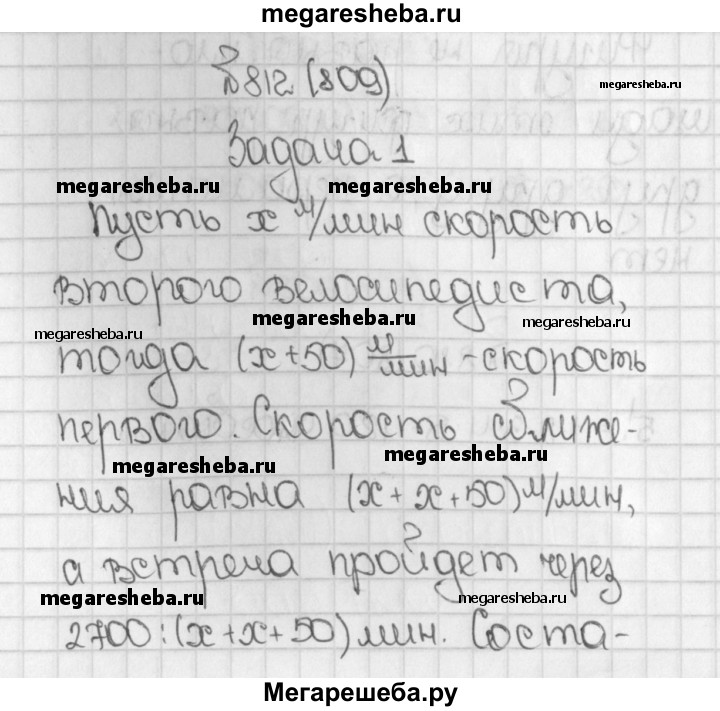 megaresheba.ru
№812 (809)
megaresheba.ru
Задача 1
megaresheba.ru megaresheba.ru
Пусть x м/мин скорость
второго велосипедиста,
megaresheba.ru megaresheba.ru megaresheba.ru
тогда (x+50) м/мин - скорость
первого. Скорость сближе-
megaresheba.ru megaresheba.ru
ния равна (x+x+50) м/мин,
а встреча пройдет через
megaresheba.ru megaresheba.ru
2700:(x+x+50) мин. Соста-
Мегарешеба.ру